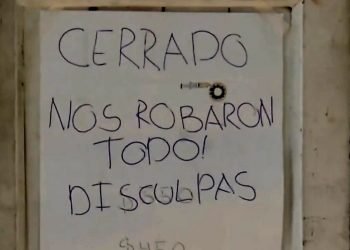 CERRADO
NOS ROBARON
TODO!
DISCULPAS